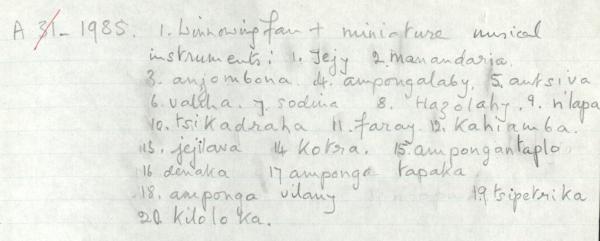 A 31-1985. 1. Winnowing fan + miniature musical
instruments: 1. Jejy 2. manandaria.
3. anjombona. 4. ampongalaby. 5. antsiva
6. valiha. 7. sodina 8. Hazolahy. 9. n'lapa
10. tsikadraha 11. faray. 12. Kahiamba.
13. jejilava 14 Kotra. 15. ampongantaplo
16 denaka 17 amponga tapaka
18. amponga vilany 19. tsipetrika
20. Kiloloka.